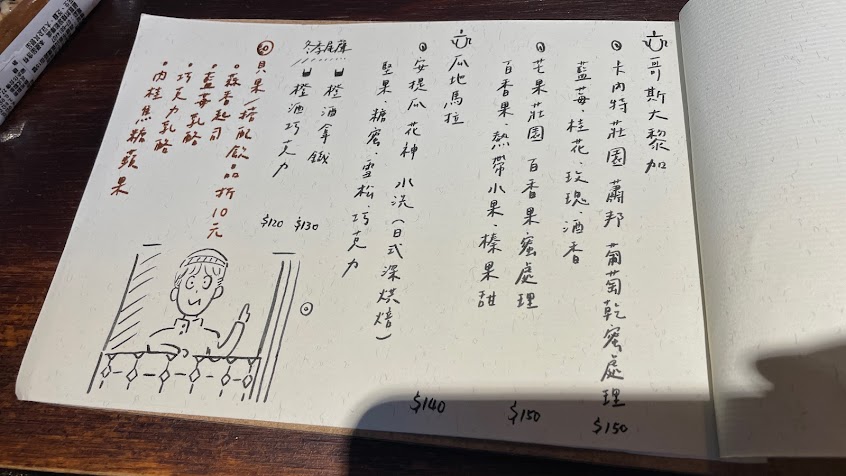 哥斯大黎加
卡內特莊園 蕭邦 葡萄乾蜜處理 $150
藍莓、桂花、玫瑰、酒香
芒果莊園 百香果蜜處理 $150
百香果、熱帶水果、榛果甜
瓜地馬拉
安提瓜 花神 水洗(日式深烘焙) $140
堅果、糖蜜、雪松、巧克力
冬季尾聲
橙酒拿鐵 $130
橙酒巧克力 $120
貝果/搭配飲品折10元
蒜香起司
藍莓乳酪
巧克力乳酪
肉桂焦糖蘋果